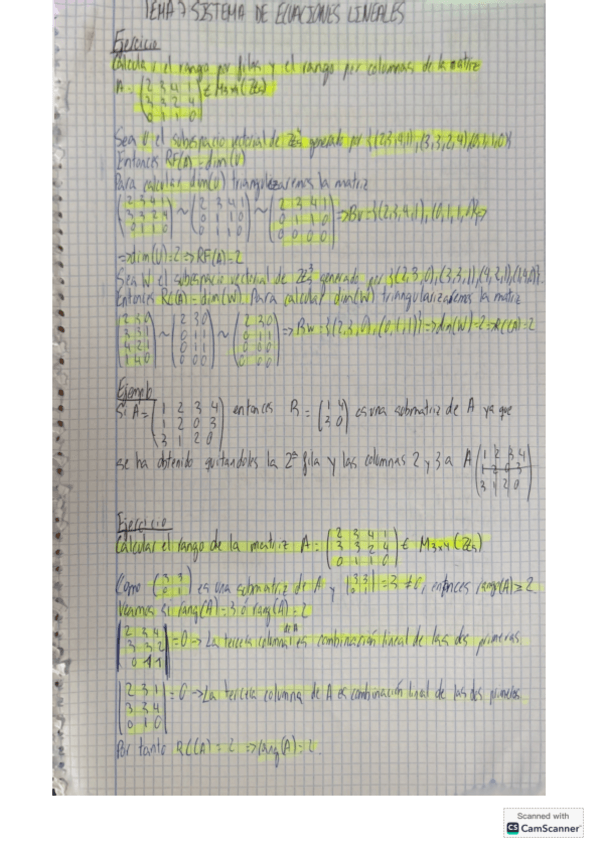 TEMA 7 SISTEMA DE ECUACIONES LINEALES
Ejercicio
Calcular el rango por filas y el rango por columnas de la matriz
A = (2 3 4 1
3 3 2 4
0 1 1 0) ∈ M3x4(Z5)
Sea U el subespacio vectorial de generado por {(2,3,4,1), (3,3,2,4), (0,1,1,0)}
Entonces RF(A) = dim(U)
Para calcular dim(U) triangulizaremos la matriz
(2 3 4 1
3 3 2 4
0 1 1 0) ~ (2 3 4 1
0 1 1 0
0 1 1 0) ~ (2 3 4 1
0 1 1 0
0 0 0 0) => Bu = {(2,3,4,1), (0,1,1,0)} =>
=> dim(U) = 2 => RF(A) = 2
Sea W el subespacio vectorial de generado por {(2,3,0), (3,3,1), (4,2,1), (1,4,0)}.
Entonces RC(A) = dim(W). Para calcular dim(W) triangularizaremos la matriz
(2 3 0
3 3 1
4 2 1
1 4 0) ~ (2 3 0
0 1 1
0 1 1
0 0 0) ~ (2 3 0
0 1 1
0 0 0
0 0 0) => Bw = {(2,3,0), (0,1,1)} => dim(W) = 2 => RC(A) = 2
Ejemplo
Si A = (1 2 3 4
1 2 0 3
3 1 2 0) entonces B = (1 4
3 0) es una submatriz de A ya que
se ha obtenido quitandoles la 2ª fila y las columnas 2 y 3 a A (1 2 3 4
1 2 0 3
3 1 2 0)
Ejercicio
Calcular el rango de la matriz A = (2 3 4 1
3 3 2 4
0 1 1 0) ∈ M3x4(Z5)
Como (3 3
0 1) es una submatriz de A y |3 3
0 1| = 3 ≠ 0, entonces rang(A) ≥ 2
Veamos si rang(A) = 3 o rang(A) = 2
|2 3 4
3 3 2
0 1 1| = 0 -> La tercera columna de A es combinación lineal de las dos primeras
|2 3 1
3 3 4
0 1 0| = 0 -> La tercera columna de A es combinación lineal de las dos primeras
Por tanto RC(A) = 2 => rang(A) = 2.
Scanned with
CS CamScanner